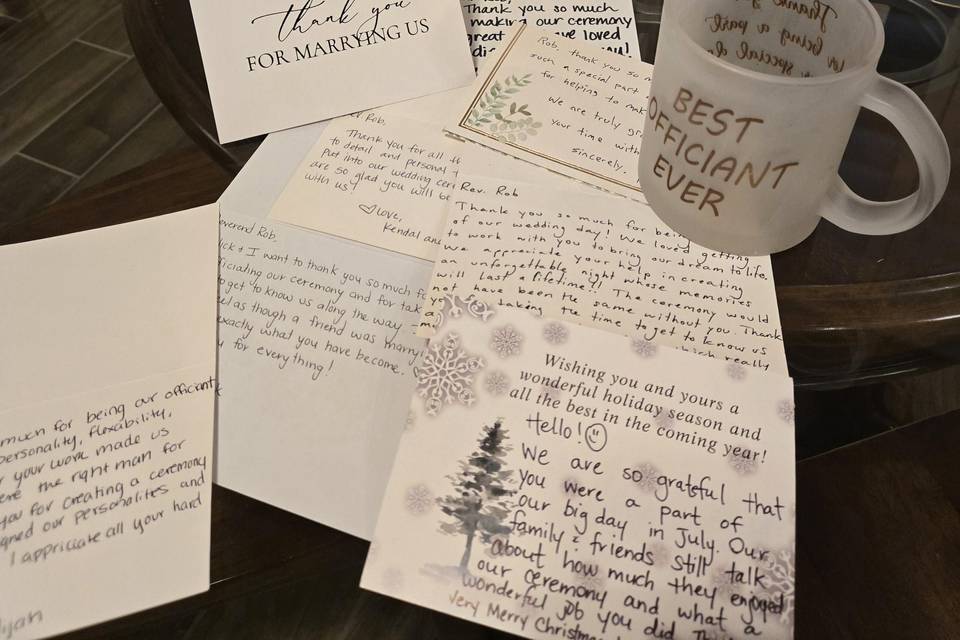 thank you
FOR MARRYING US
Thank you so much
making our ceremony
great
have loved
you!
Rob, thank you so m
such a special part
for helping to mak
We are truly gr
your time with
sincerely,
Thank
being a part
special d
BEST
OFFICIANT
EVER
Rob,
Thank you for all th
to detail and personal t
Put into our wedding cer
are so glad you will be
with us!
♡ Love,
Kendal and
Rev. Rob
Thank you so much for bein
of our wedding day! We loved getting
to work with you to bring our dream to life.
We appreciate your help in creating
an unforgettable night whose memories
will last a lifetime!! The ceremony would
not have been the same without you. Thank
taking the time to get to know us
which really
everend Rob,
ick & I want to thank you so much fo
ficiating our ceremony and for tak
to get to know us along the way.
eel as though a friend was marryi
exactly what you have become.
u for everything!
much for being our officiant
personality, flexibility,
your work made us
ere the right man for
you for creating a ceremony
gned our personalites and
I appriciate all your hard
ijah
Wishing you and yours a
wonderful holiday season and
all the best in the coming year!
Hello! ☺
We are so grateful that
you were a part of
our big day in July. Our
family & friends still talk
about how much they enjoyed
our ceremony and what a
wonderful job you did. Th
Very Merry Christmas